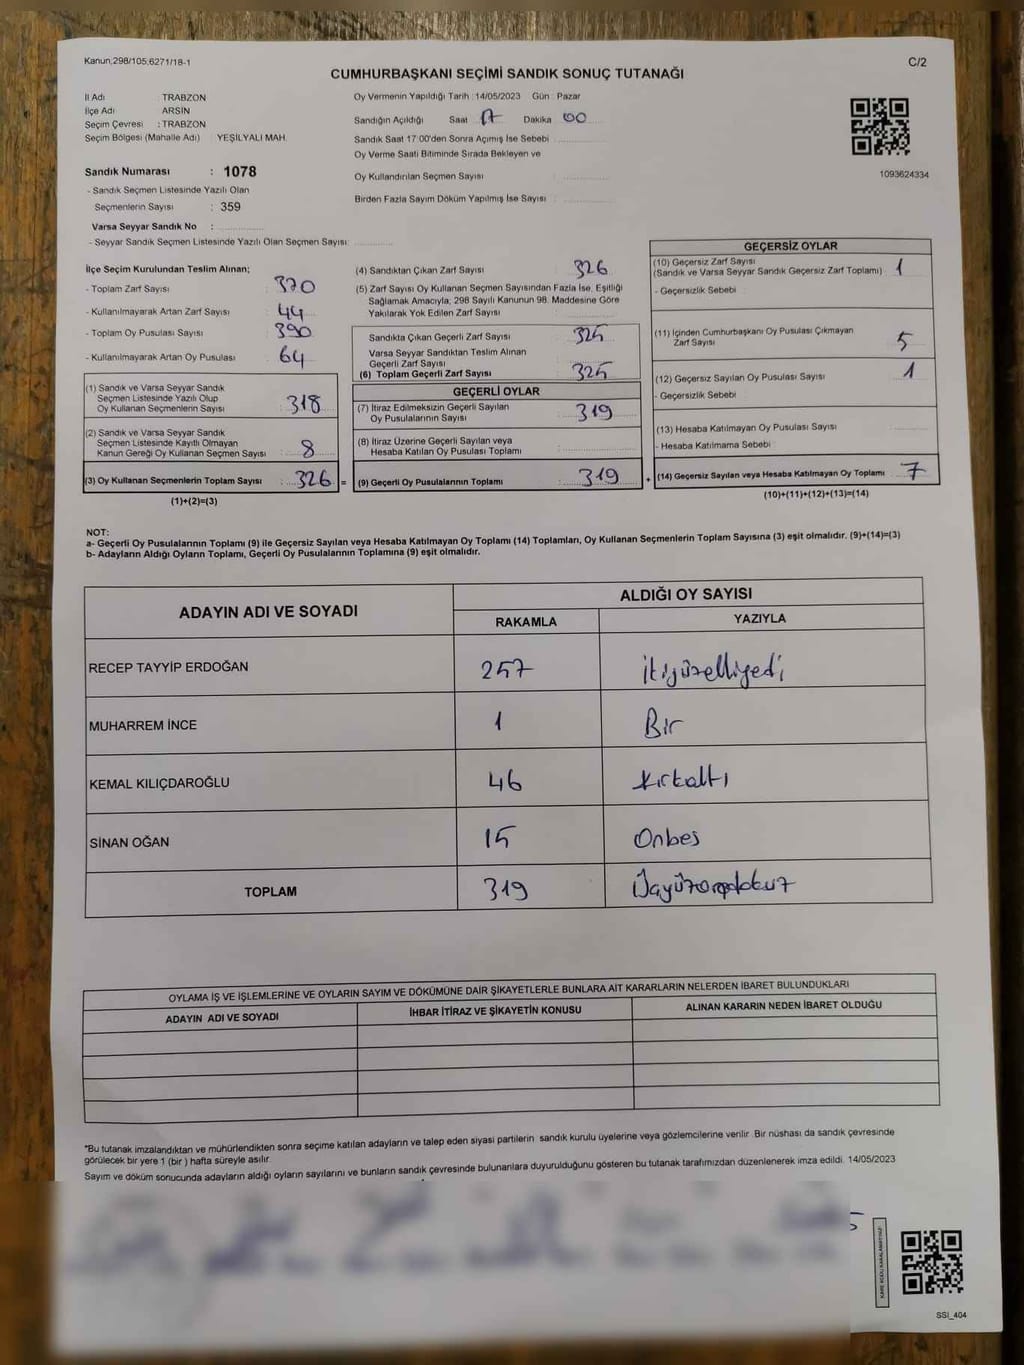 Kanun;298/105;6271/18-1
C/2
CUMHURBAŞKANI SEÇİMİ SANDIK SONUÇ TUTANAĞI
İl Adı : TRABZON
İlçe Adı : ARSİN
Seçim Çevresi : TRABZON
Seçim Bölgesi (Mahalle Adı) : YEŞİLYALI MAH.
Oy Vermenin Yapıldığı Tarih : 14/05/2023 Gün : Pazar
Sandığın Açıldığı Saat 17 Dakika 00
Sandık Saat 17:00'den Sonra Açımış İse Sebebi :
Oy Verme Saati Bitiminde Sırada Bekleyen ve
Oy Kullandırılan Seçmen Sayısı :
Birden Fazla Sayım Döküm Yapılmış İse Sayısı :
1093624334
Sandık Numarası : 1078
- Sandık Seçmen Listesinde Yazılı Olan
Seçmenlerin Sayısı : 359
Varsa Seyyar Sandık No :
- Seyyar Sandık Seçmen Listesinde Yazılı Olan Seçmen Sayısı:
İlçe Seçim Kurulundan Teslim Alınan;
- Toplam Zarf Sayısı : 370
- Kullanılmayarak Artan Zarf Sayısı : 44
- Toplam Oy Pusulası Sayısı : 390
- Kullanılmayarak Artan Oy Pusulası : 64
(1) Sandık ve Varsa Seyyar Sandık
Seçmen Listesinde Yazılı Olup
Oy Kullanan Seçmenlerin Sayısı : 318
(2) Sandık ve Varsa Seyyar Sandık
Seçmen Listesinde Kayıtlı Olmayan
Kanun Gereği Oy Kullanan Seçmen Sayısı : 8
(3) Oy Kullanan Seçmenlerin Toplam Sayısı : 326 =
(1)+(2)=(3)
(4) Sandıktan Çıkan Zarf Sayısı : 326
(5) Zarf Sayısı Oy Kullanan Seçmen Sayısından Fazla İse, Eşitliği
Sağlamak Amacıyla; 298 Sayılı Kanunun 98. Maddesine Göre
Yakılarak Yok Edilen Zarf Sayısı :
Sandıkta Çıkan Geçerli Zarf Sayısı : 325
Varsa Seyyar Sandıktan Teslim Alınan
Geçerli Zarf Sayısı :
(6) Toplam Geçerli Zarf Sayısı : 325
GEÇERLİ OYLAR
(7) İtiraz Edilmeksizin Geçerli Sayılan
Oy Pusulalarının Sayısı : 319
(8) İtiraz Üzerine Geçerli Sayılan veya
Hesaba Katılan Oy Pusulası Toplamı :
(9) Geçerli Oy Pusulalarının Toplamı : 319 +
GEÇERSİZ OYLAR
(10) Geçersiz Zarf Sayısı
(Sandık ve Varsa Seyyar Sandık Geçersiz Zarf Toplamı) : 1
- Geçersizlik Sebebi :
(11) İçinden Cumhurbaşkanı Oy Pusulası Çıkmayan
Zarf Sayısı : 5
(12) Geçersiz Sayılan Oy Pusulası Sayısı : 1
- Geçersizlik Sebebi :
(13) Hesaba Katılmayan Oy Pusulası Sayısı :
- Hesaba Katılmama Sebebi :
(14) Geçersiz Sayılan veya Hesaba Katılmayan Oy Toplamı : 7
(10)+(11)+(12)+(13)=(14)
NOT:
a- Geçerli Oy Pusulalarının Toplamı (9) ile Geçersiz Sayılan veya Hesaba Katılmayan Oy Toplamı (14) Toplamları, Oy Kullanan Seçmenlerin Toplam Sayısına (3) eşit olmalıdır. (9)+(14)=(3)
b- Adayların Aldığı Oyların Toplamı, Geçerli Oy Pusulalarının Toplamına (9) eşit olmalıdır.
ADAYIN ADI VE SOYADI
ALDIĞI OY SAYISI
RAKAMLA YAZIYLA
RECEP TAYYİP ERDOĞAN 257 İkiyüzelliyedi
MUHARREM İNCE 1 Bir
KEMAL KILIÇDAROĞLU 46 Kırkaltı
SİNAN OĞAN 15 Onbes
TOPLAM 319 Üçyüzondokuz
OYLAMA İŞ VE İŞLEMLERİNE VE OYLARIN SAYIM VE DÖKÜMÜNE DAİR ŞİKAYETLERLE BUNLARA AİT KARARLARIN NELERDEN İBARET BULUNDUKLARI
ADAYIN ADI VE SOYADI İHBAR İTİRAZ VE ŞİKAYETİN KONUSU ALINAN KARARIN NEDEN İBARET OLDUĞU
*Bu tutanak imzalandıktan ve mühürlendikten sonra seçime katılan adayların ve talep eden siyasi partilerin sandık kurulu üyelerine veya gözlemcilerine verilir. Bir nüshası da sandık çevresinde
görülecek bir yere 1 (bir) hafta süreyle asılır.
Sayım ve döküm sonucunda adayların aldığı oyların sayılarını ve bunların sandık çevresinde bulunanlara duyurulduğunu gösteren bu tutanak tarafımızdan düzenlenerek imza edildi. 14/05/2023
KARE KODU KARALAMAYINIZ!
SSI_404